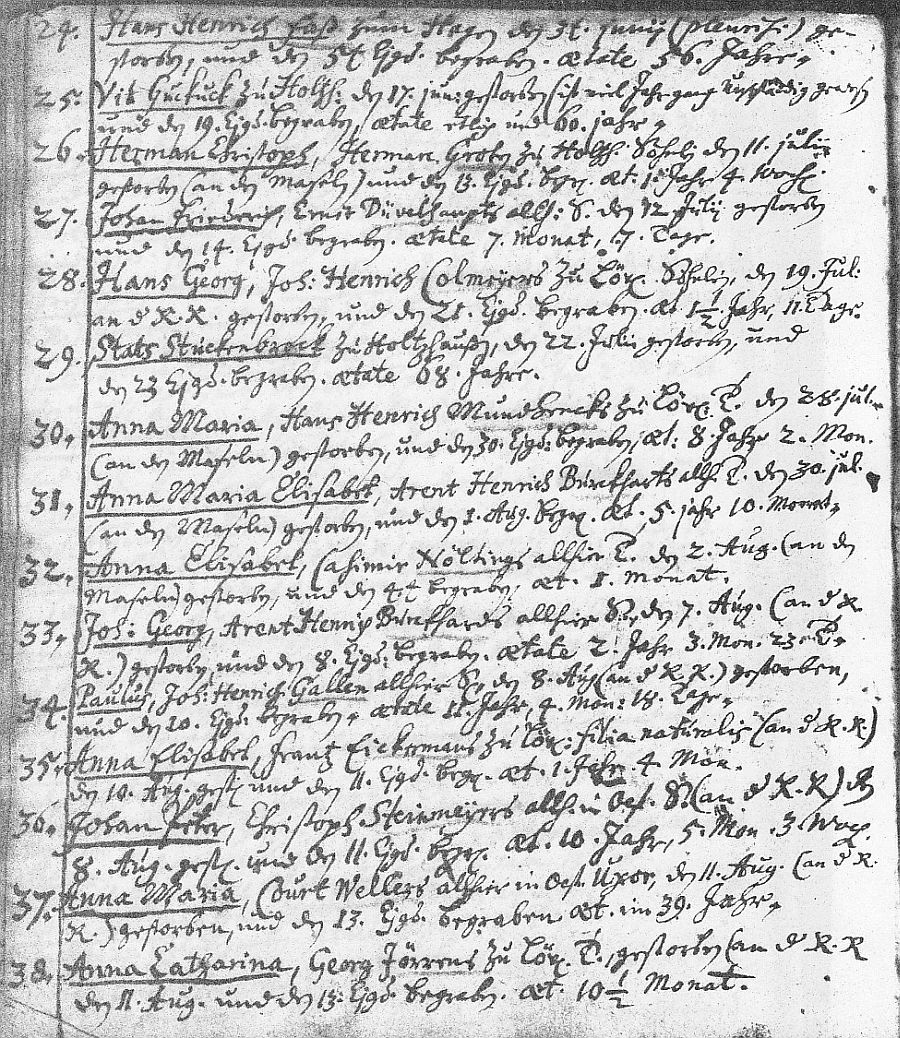 24. Hans Henrich Faß zum Hagen den 3t. Junij (pleurit:) ge-
storben, und den 5t. Ejsd. begraben. ætate 56. Jahre.
25. Vit Guckuck zu Holtzh: den 17. jun: gestorben (ist viel Jahr gewesen)
und den 19. Ejsd. begraben, ætate etlich und 60. jahr.
26. Herman Christoph, Herman Groten zu Holtzh. Söhnlein den 11. julii
gestorben (an den Maseln) und den 13. Ejsd. begr. æt. 1. Jahr 4. Woch.
27. Johan Friederich, Ernst Düvelhaupts allh: S. den 12 Julij gestorben
und den 14. Ejsd. begraben. ætate 7. Monat, 7. Tage.
28. Hans Georg, Joh: Henrich Colmeyers zu Löx. Söhnlein, den 19. Jul:
an d R. R. gestorben, und den 21. Ejsd. begraben. æt. 1 1/2 Jahr, 11. Tage.
29. Stats Stuckenbrock zu Holtzhaußen, den 22. Julii gestorben, und
den 23 Ejsd. begraben. ætate 68. Jahre.
30. Anna Maria, Hans Henrich Mundhencks zu Löx. T. den 28. jul.
(an den Maseln) gestorben, und den 30. Ejsd. begraben, æt: 8. Jahr 2. Mon.
31. Anna Maria Elisabet, Arent Henrich Burchharts allh. T. den 30. jul.
(an den Maseln) gestorben, und den 1. Aug. begr. æt. 5. jahr 10. Monat.
32. Anna Elisabet, Casimir Nöltings allhier T. den 2. Aug. (an den
Maseln) gestorben, und den 4t begraben, æt. 1. monat.
33. Joh: Georg, Arent Henrich Burchhards allhier S., den 7. Aug. (an d R.
R.) gestorben, und den 8. Ejsd. begraben. ætate 2. Jahr 3. Mon. 23. T.
34. Paulus, Joh: Henrich Gallen allhier S. den 8. Aug (an d R. R.) gestorben,
und den 10. Ejsd. begraben, ætate 11. Jahr, 4. Mon: 18. Tage.
35. Anna Elisabet, Frantz Eickermans zu Löx: filia naturalis (an d R. R.)
den 10. Aug. gest. und den 11. Ejsd. begr. æt. 1. Jahr 4. Mon.
36. Johan Peter, Christoph Steinmeyers allh. in Oest. S. (an d R. R) den
8. Aug. gest. und den 11. Ejsd. begr. æt. 10. Jahr, 5. Mon. 3. Woch.
37. Anna Maria, Court Wellers allhier in Oest. Uxor, den 11. Aug. (an d R.
R.) gestorben, und den 13. Ejsd. begraben æt. im 39. Jahre.
38. Anna Catharina, Georg Jörrens zu Löx. T., gestorben (an d R. R
den 11. Aug. und den 13. Ejsd. begraben. æt. 10 1/2 Monat.